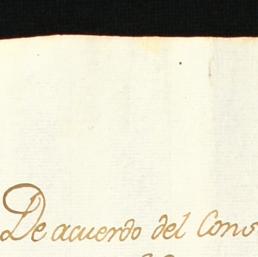 De acuerdo del Cons